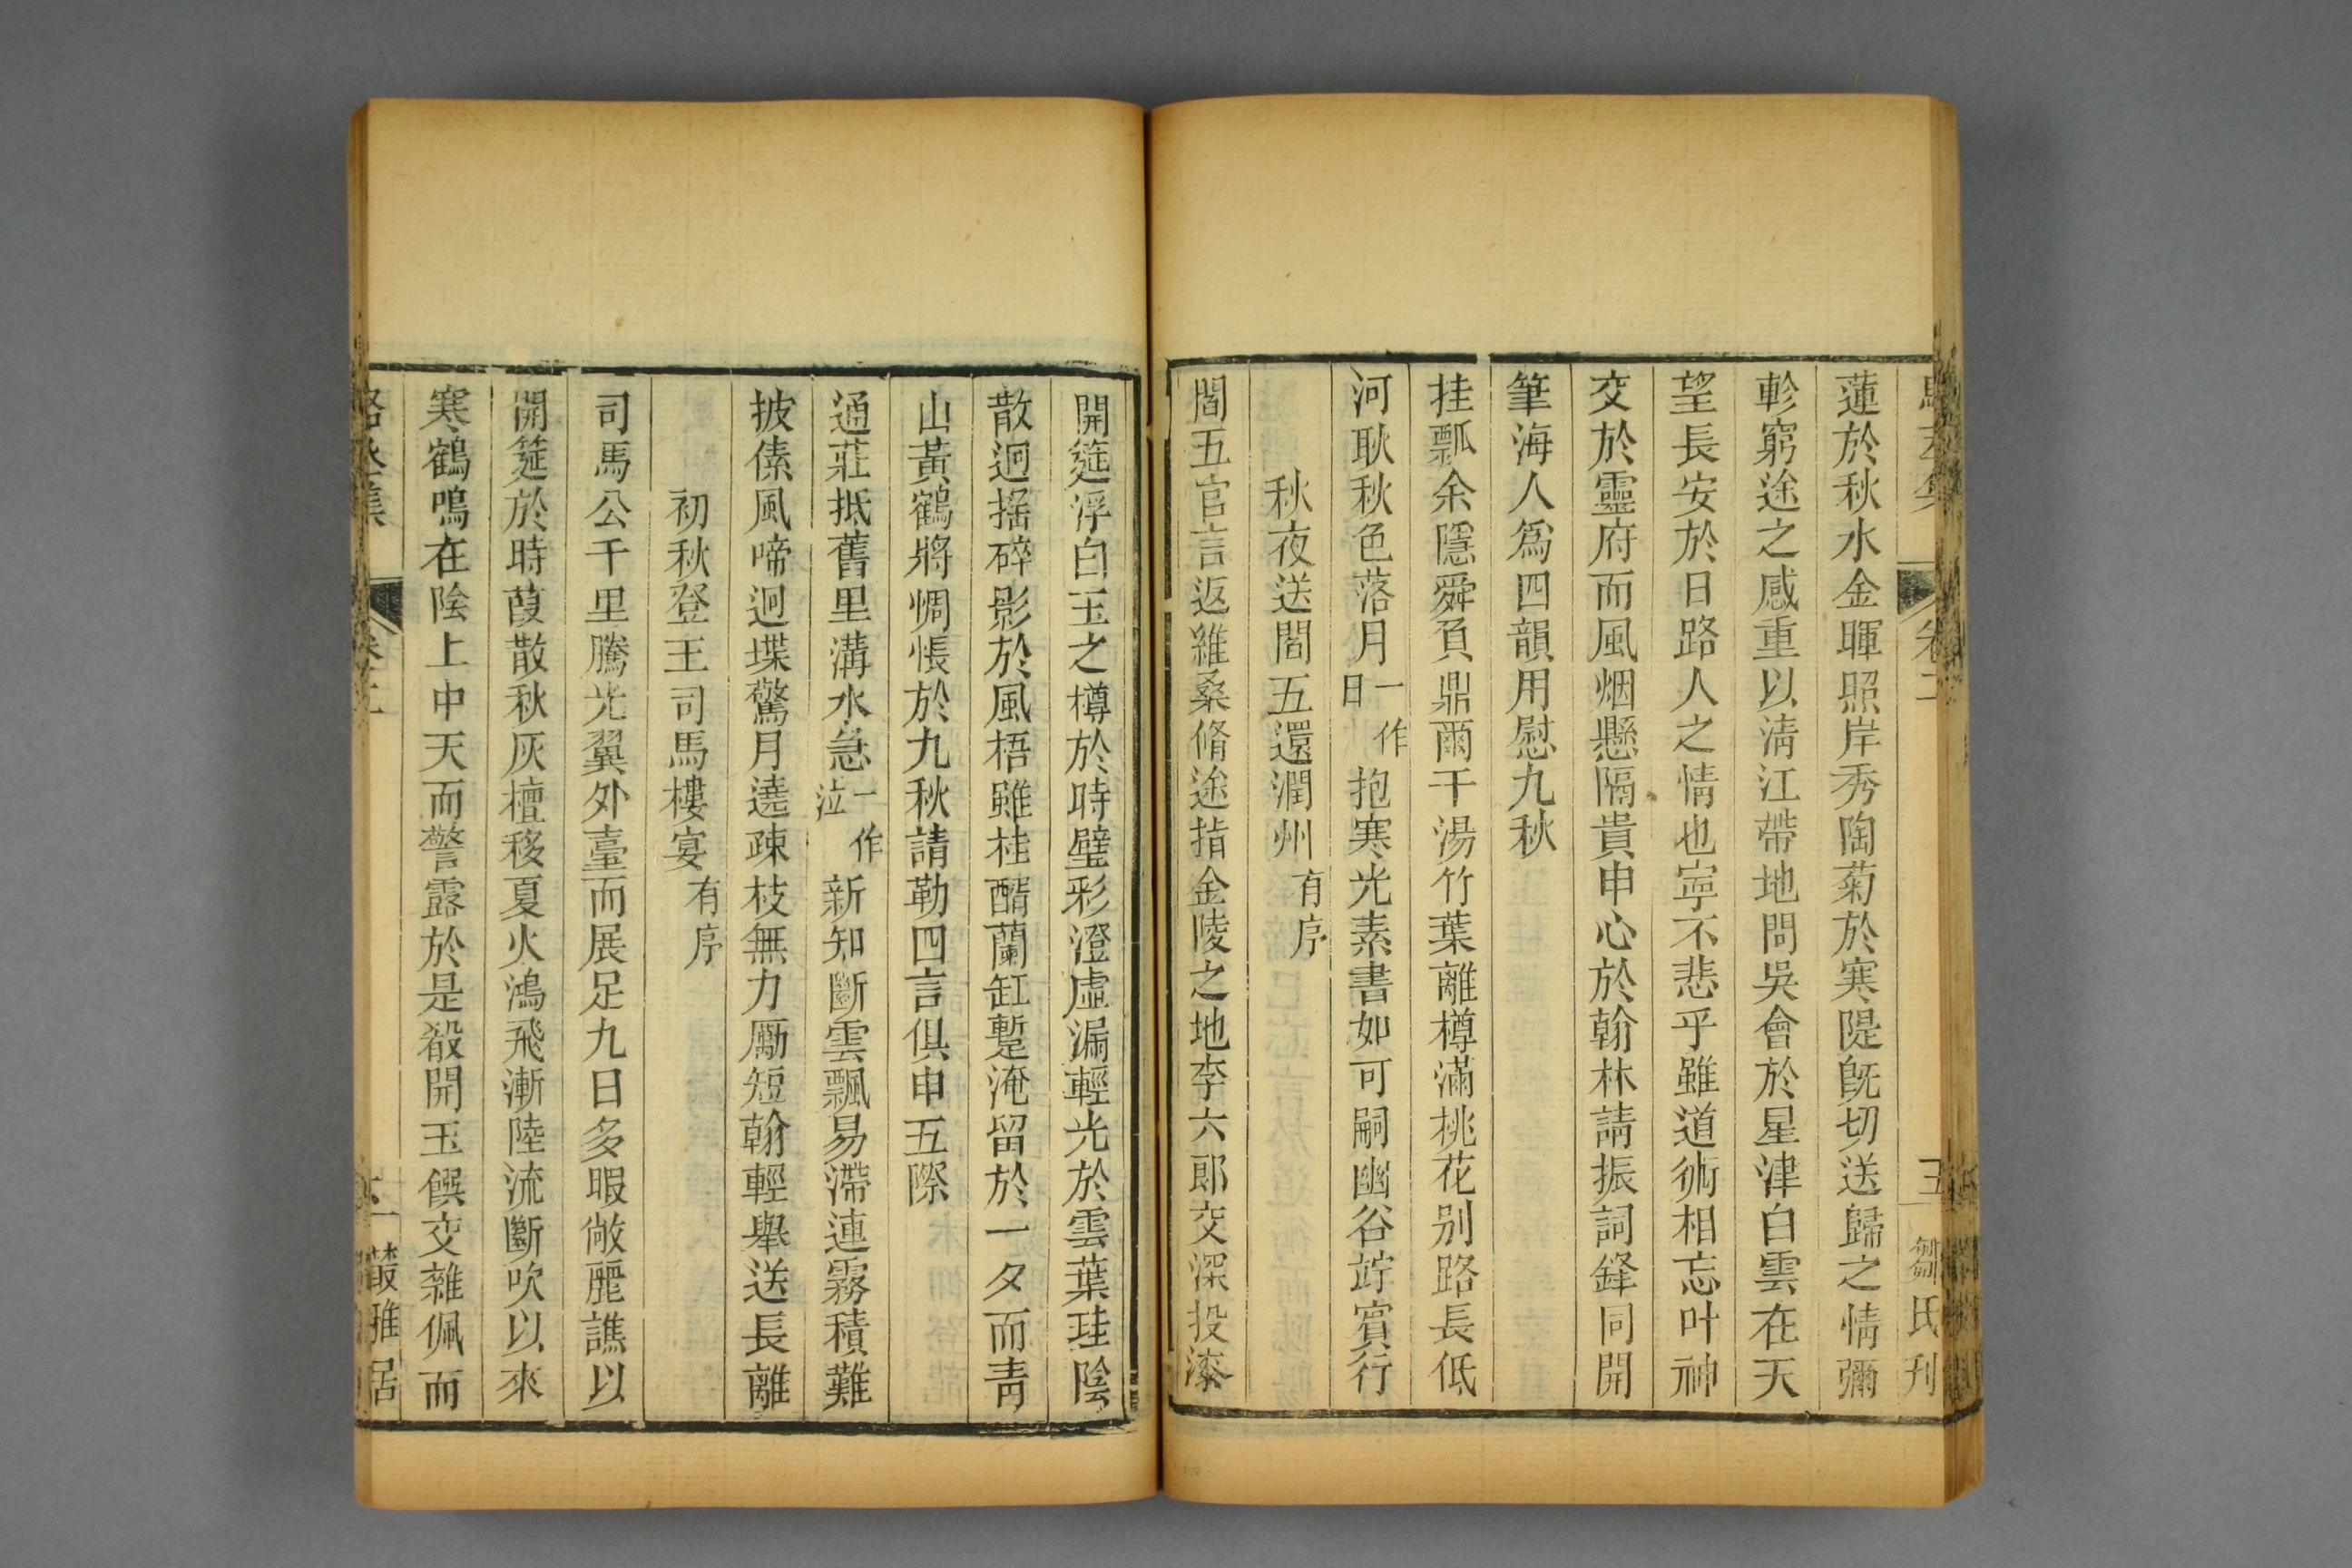 蓮於秋水金暉照岸秀陶菊於寒隄旣切送歸之情彌
軫窮途之感重以淸江帶地問吳會於星津白雲在天
望長安於日路人之情也寧不悲乎雖道術相忘叶神
交於靈府而風烟懸隔貴申心於翰林請振詞鋒同開
筆海人爲四韻用慰九秋
挂瓢余隱舜負鼎爾干湯竹葉離樽滿桃花别路長低
河耿秋色落月一作日抱寒光素書如可嗣幽谷竚賓行
秋夜送閻五還潤州有序
閻五官言返維桑脩途指金陵之地李六郎交深投漆
卷二
五
芻氏刋
開筵浮白玉之樽於時璧彩澄虛漏輕光於雲葉珪陰
散迥搖碎影於風梧雖桂醑蘭缸蹔淹留於一夕而靑
山黃鶴將惆悵於九秋請勒四言俱申五際
通莊抵舊里溝水急一作泣新知斷雲飄易滯連霧積難
披傃風啼迥堞驚月遶疎枝無力勵短翰輕舉送長離
初秋登王司馬樓宴有序
司馬公千里騰光翼外臺而展足九日多暇敞麗譙以
開筵於時葭散秋灰檀移夏火鴻飛漸陸流斷吹以來
寒鶴鳴在陰上中天而警露於是殽開玉饌交雜佩而
叢雅居